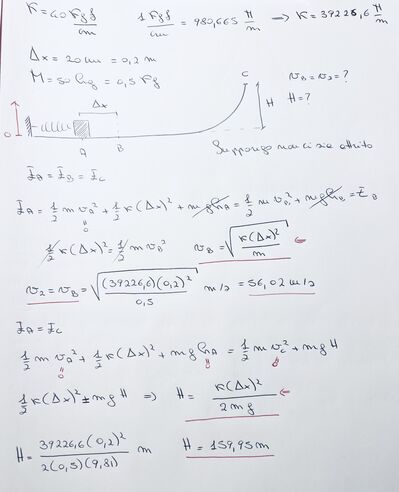 K = 40 Kgf/cm    1 Kgf/cm = 980,665 N/m ⟹ K = 39226,6 N/m
Δx = 20 cm = 0,2 m
M = 50 hg = 0,5 Kg
C
Δx
H
v_B = v_2 = ?
H = ?
0
A B
Suppongo non ci sia attrito
E_A = E_B = E_C
E_A = 1/2 m v_A² + 1/2 K(Δx)² + mgh_A = 1/2 m v_B² + mgh_B = E_B
0
1/2 K(Δx)² = 1/2 m v_B²    v_B = √(K(Δx)²/m)
v_2 = v_B = √((39226,6)(0,2)²/0,5) m/s = 56,02 m/s
E_A = E_C
1/2 m v_A² + 1/2 K(Δx)² + mgh_A = 1/2 m v_C² + mgH
0 0 0
1/2 K(Δx)² = mgH ⟹ H = K(Δx)²/2mg
H = 39226,6(0,2)²/2(0,5)(9,81) m    H = 159,95 m